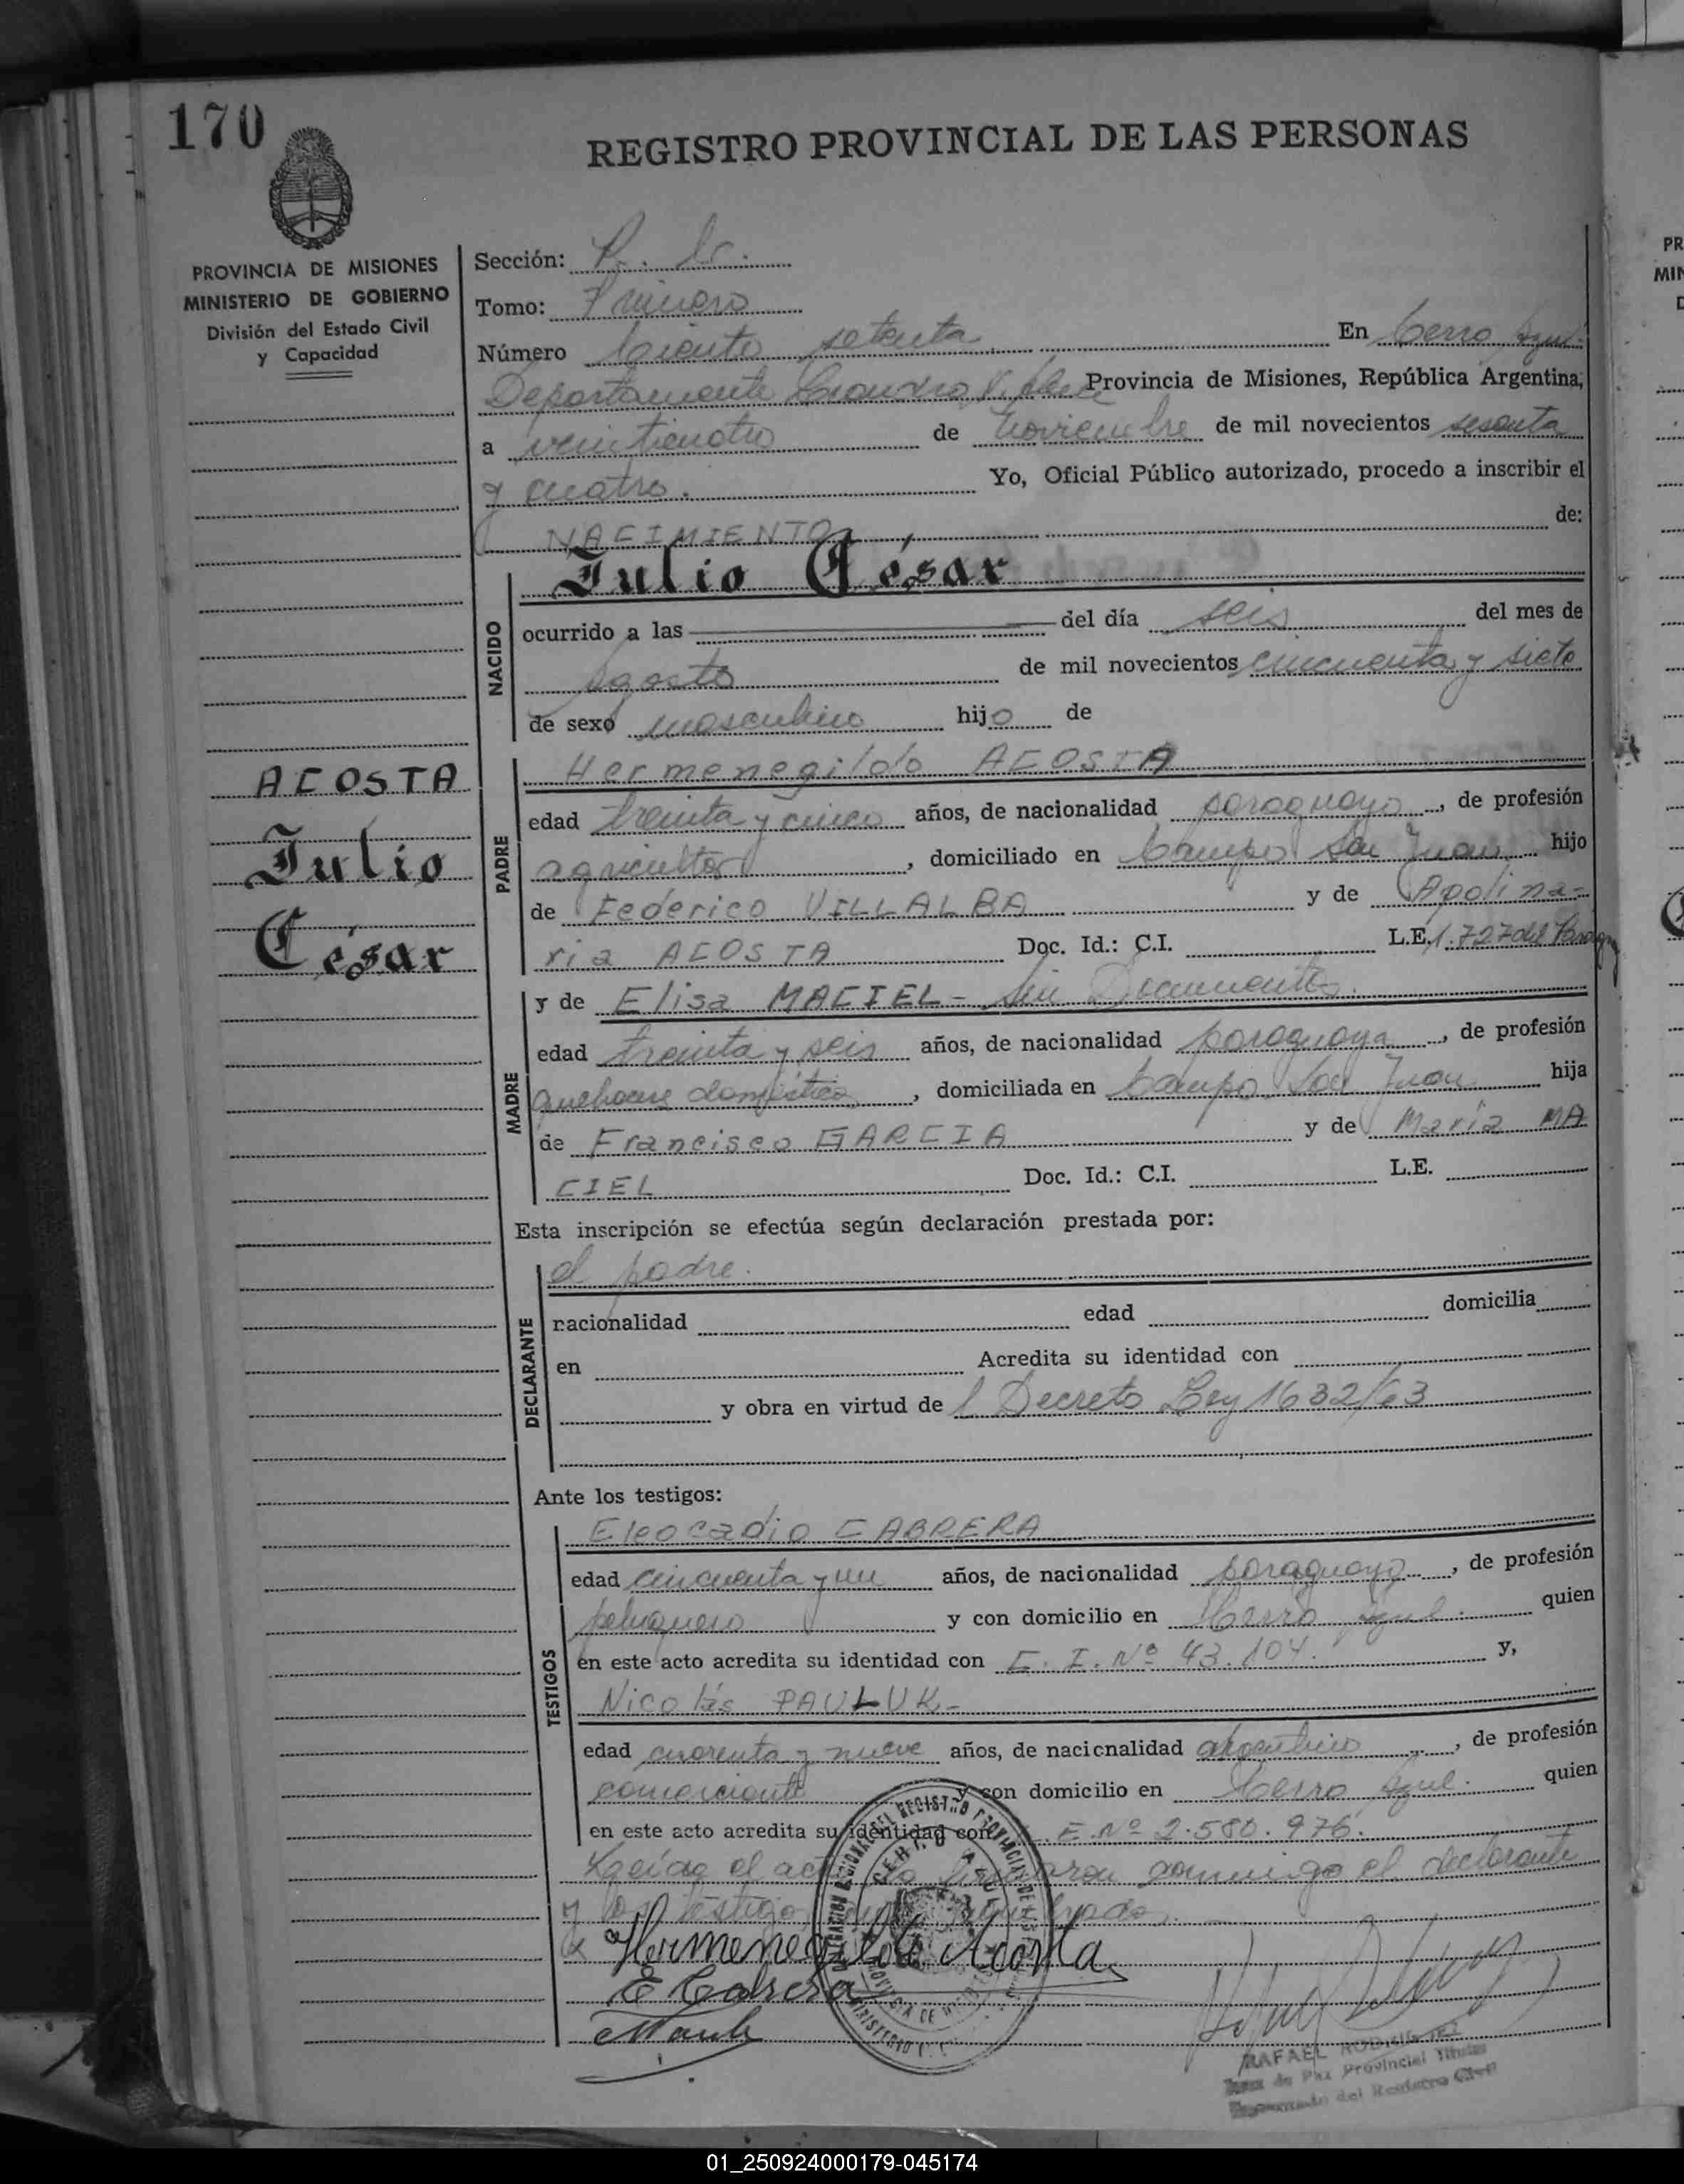 170
REGISTRO PROVINCIAL DE LAS PERSONAS
PROVINCIA DE MISIONES
MINISTERIO DE GOBIERNO
División del Estado Civil
y Capacidad
Sección:
Tomo: Primero
Número Ciento setenta En Cerro Azul
Departamento Leandro N. Alem Provincia de Misiones, República Argentina,
a veinticuatro de noviembre de mil novecientos sesenta
y cuatro. Yo, Oficial Público autorizado, procedo a inscribir el
NACIMIENTO de:
NACIDO
Julio César
ocurrido a las del día seis del mes de
agosto de mil novecientos cincuenta y siete
de sexo masculino hijo de
ACOSTA
Julio
César
PADRE
Hermenegildo ACOSTA
edad treinta y cinco años, de nacionalidad paraguayo, de profesión
agricultor, domiciliado en Campo San Juan hijo
de Federico VILLALBA y de Apolina-
ria ACOSTA Doc. Id.: C.I. L.E. 1.727 del
MADRE
y de Elisa MACIEL - Sin Documentos.
edad treinta y seis años, de nacionalidad paraguaya, de profesión
quehacer doméstico, domiciliada en Campo San Juan hija
de Francisco GARCIA y de María MA
CIEL Doc. Id.: C.I. L.E.
Esta inscripción se efectúa según declaración prestada por:
DECLARANTE
el padre.
nacionalidad edad domicilia
en Acredita su identidad con
y obra en virtud de l Decreto Ley 1632/63
Ante los testigos:
TESTIGOS
Eleocadio CABRERA
edad cincuenta y un años, de nacionalidad paraguayo, de profesión
peluquero y con domicilio en Cerro Azul. quien
en este acto acredita su identidad con C. I. Nº 43.104. y,
Nicolás PAULUK-
edad cuarenta y nueve años, de nacionalidad argentino, de profesión
comerciante y con domicilio en Cerro Azul. quien
en este acto acredita su identidad con L.E. Nº 2.580.976.
Leída el acta la firmaron conmigo el declarante
y los testigos
Hermenegildo Acosta
E Cabrera
RAFAEL RODRIGUEZ
Juez de Paz Provincial Titular
Encargado del Registro Civil
01_250924000179-045174